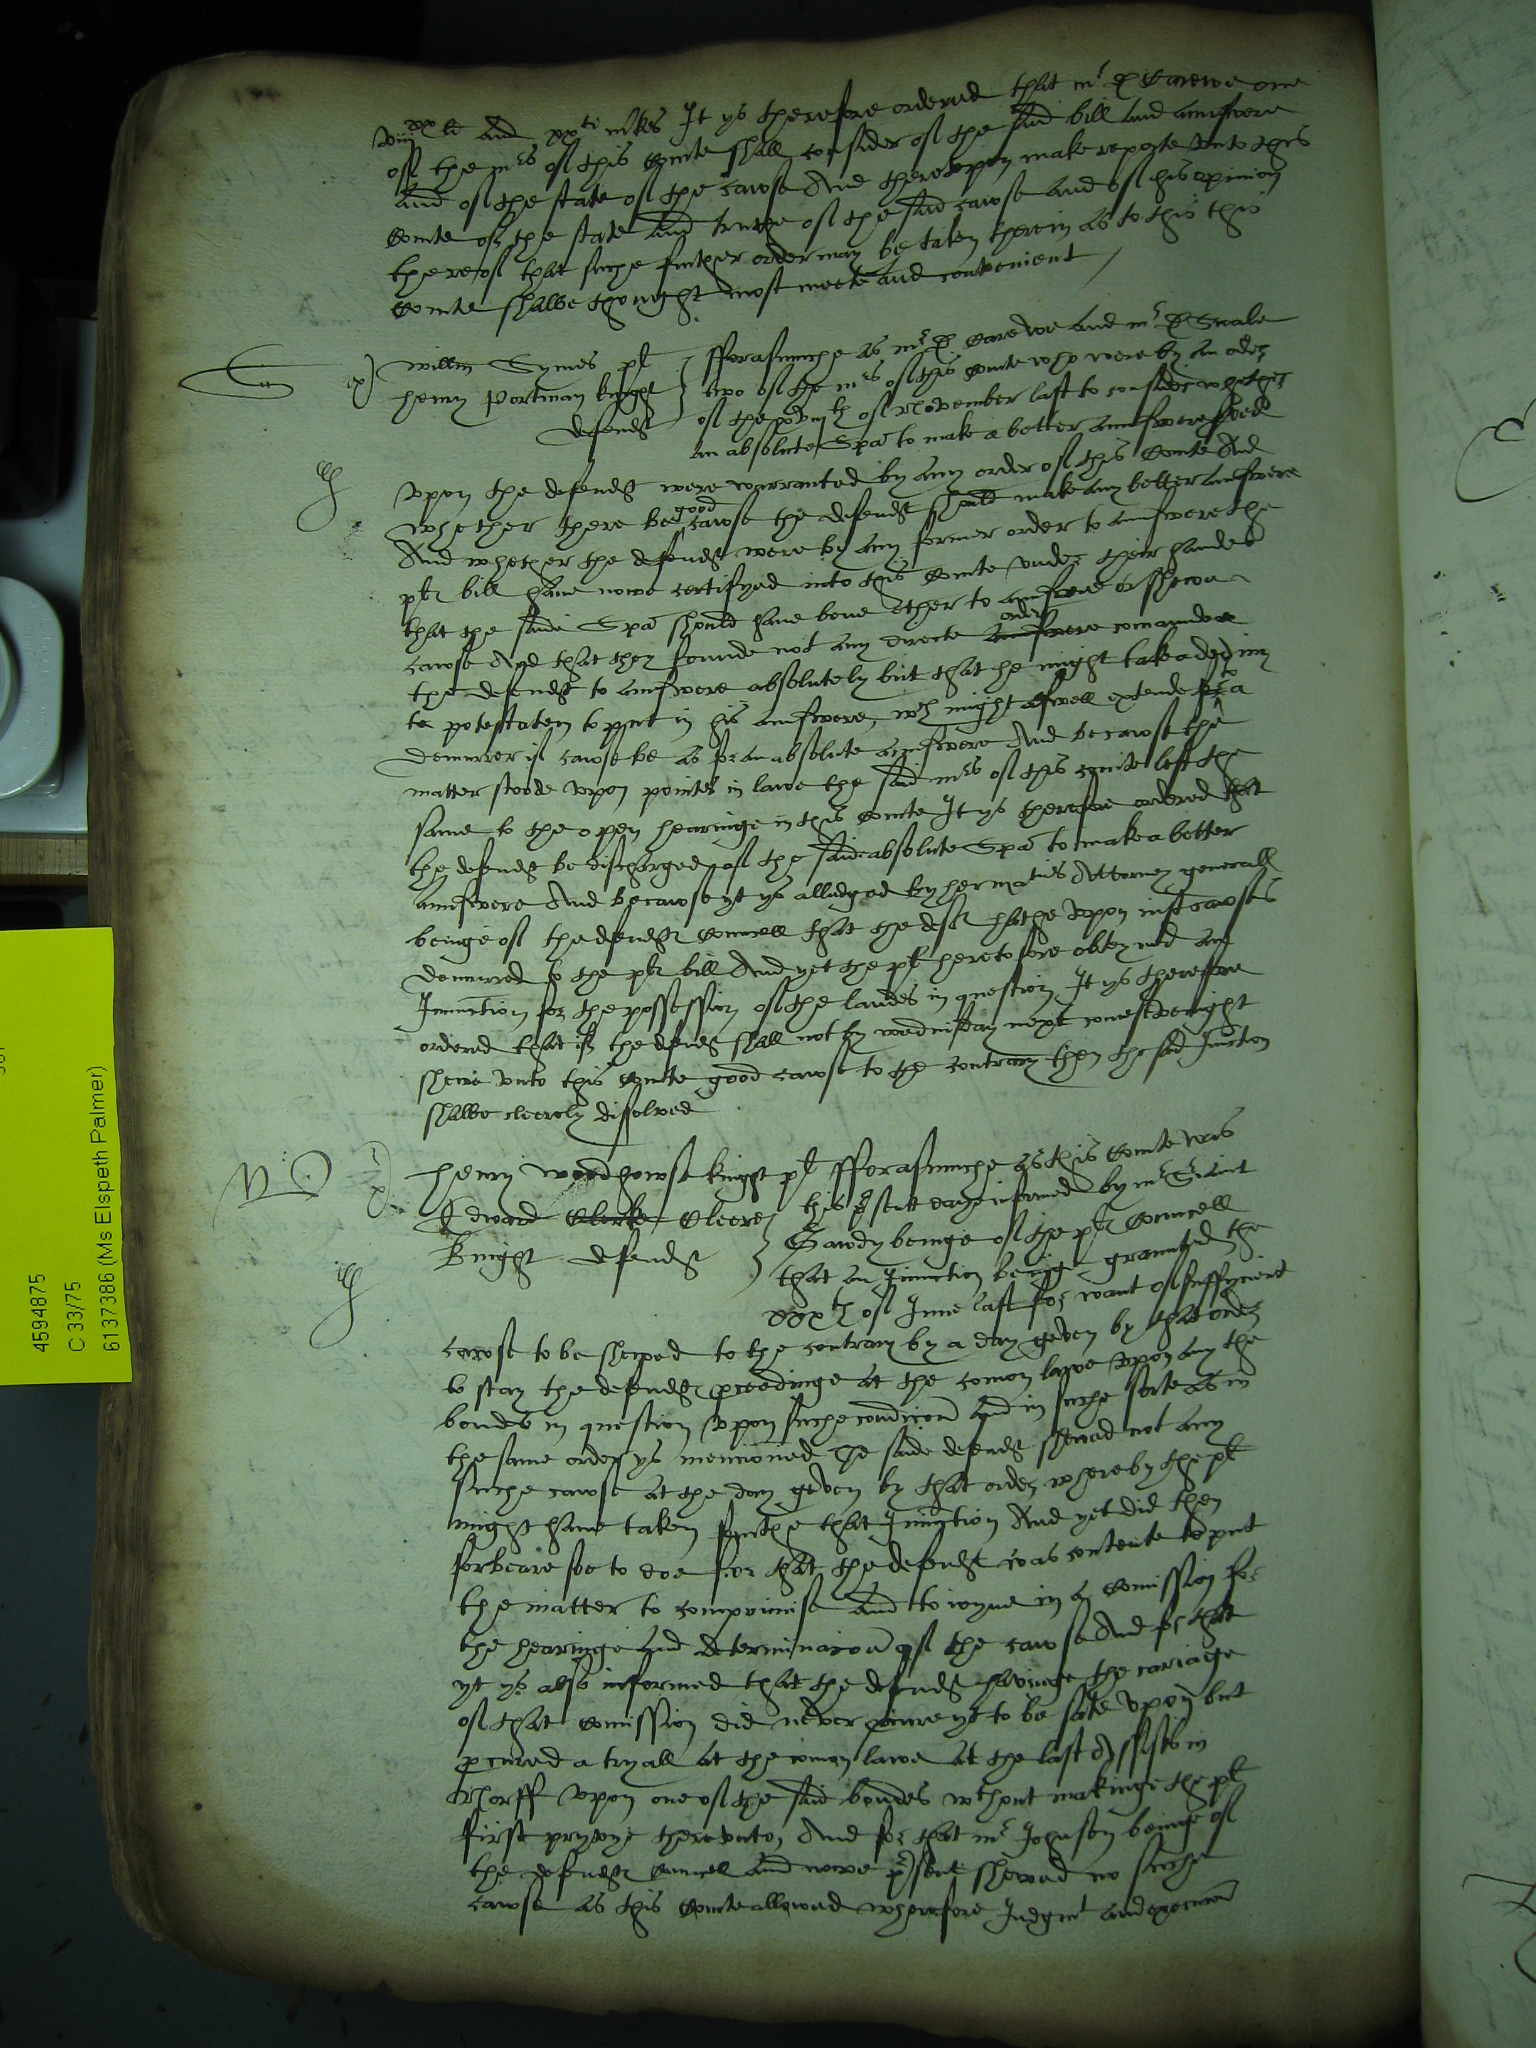 viij xx li and xx ti mrkes It ys therefore ordered that mr D Carewe one
of the mrs of this Courte shall consider of the said bill and aunswere
and of the state of the cawse And thereupon make reporte unto this
Courte of the state and truthe of the said cawse and of his opinion
thereof that suche further order may be taken therein as to this this
Courte shalbe thought most meete and convenient
Willm Symes plt
Henry Portman knight
defendt
Forasmuche as mr D Carewe and mr D Swale
two of the mrs of this Courte who were by an order
of the of November last to consider whether
an absolute Spa to make a better aunswere
upon the defendt were warranted by any order of this Courte And
whether there be good cawse the defendt should make any better aunswere
And whether the defendt were by any former order to aunswere the
plts bill have nowe certifyed into this Courte under their handes
that the saide Spa should have bene ether to aunswere or shewe
cawse And that they founde not any directe aunswere order comaundee
the defendt to aunswere absolutely but that he might take a dedimus
potestatem to putt in his aunswere, wch might aswell extende to a
demurrer if cawse be as for an absolute aunswere And becawse the
matter stoode upon pointes in lawe the said mrs of this courte left the
same to the open hearinge in this Courte It ys therefore ordered that
the defendt be discharged of the saide absolute Spa to make a better
aunswere And becawse yt ys alledged by her maties Attorney generall
beinge of the defendts Councell that the deft hathe upon just cawses
demurred to the plts bill And yet the plt heretofore obteyned an
Iniunction for the possession of the landes in question It ys therefore
ordered that if the defendt shall not by wednisday next come sevenight
shewe unto this Courte good cawse to the contrary then the said Iniunction
shalbe cleerely dissolved
Henry Woodhowse knight plt
Edward Clerke Cleere
Knight defendt
Forasmuche as this Courte was
this present daye informed by mr Seriant
Gawdy beinge of the plts Councell
that an Iniunction beinge graunted the
xxxth of June last for want of suffycient
cawse to be shewed to the contrary by a day geven by that order
to stay the defendts proceedinge at the comon lawe upon any the
bondes in question upon suche condicons and in suche sorte as in
the same order ys mencioned The saide defendt shewed not any
suche cawse at the day geven by that order whereby the plt
might have taken furthe that Iniunction And yet did then
forbeare soe to doe for that the defendt was contente to putt
the matter to compromise and to ioyne in a Comission for
the hearinge and determinacon of the cawse And for that
yt ys also informed that the defendt havinge the cariage
of that Comission did never procure yt to be sate upon but
procured a tryall at the comon lawe at the last Assises in
Norff upon one of the said bondes wthout makinge the plt
first pryvye thereunto, And for that mr Johnson beinge of
the defendts Councell and nowe present shewed no suche
cawse as this Courte allowed wherefore Judgmt and execucon
4594875
C 33/75
6137386 (Ms Elspeth Palmer)